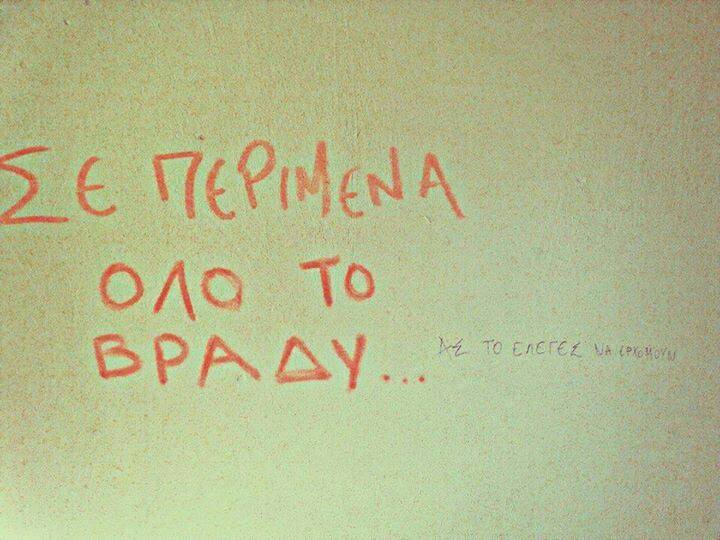 ΣΕ ΠΕΡΙΜΕΝΑ
ΟΛΟ ΤΟ
ΒΡΑΔΥ...
ΑΣ ΤΟ ΕΛΕΓΕΣ ΝΑ ΕΡΧΟΜΟΥΝ